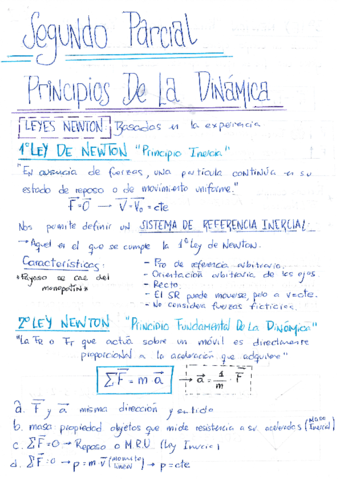 Segundo Parcial
Principios De La Dinámica
LEYES NEWTON Basadas en la experiencia
1ª LEY DE NEWTON "Principio Inercia"
"En ausencia de fuerzas, una partícula continúa en su
estado de reposo o de movimiento uniforme."
F=0 → V=V₀=cte
Nos permite definir un SISTEMA DE REFERENCIA INERCIAL:
→ Aquel en el que se cumple la 1ª Ley de Newton.
Características:
- Pto de referencia arbitrario.
- Orientación arbitraria de los ejes
- Recto.
- El SR puede moverse, pero a v=cte.
- No considera fuerzas ficticias.
se cae del
2ª LEY NEWTON "Principio Fundamental De La Dinámica"
"La Fe o Fr que actúa sobre un móvil es directamente
proporcional a la aceleración que adquiere"
ΣF = m a → a = 1/m · F
a. F y a misma dirección y sentido
b. masa propiedad objetos que mide resistencia a ser acelerados (Masa Inercial)
c. ΣF=0 → Reposo o M.R.U. (Ley Inercia)
d. ΣF=0 → p=m·v (Momento lineal) → p=cte